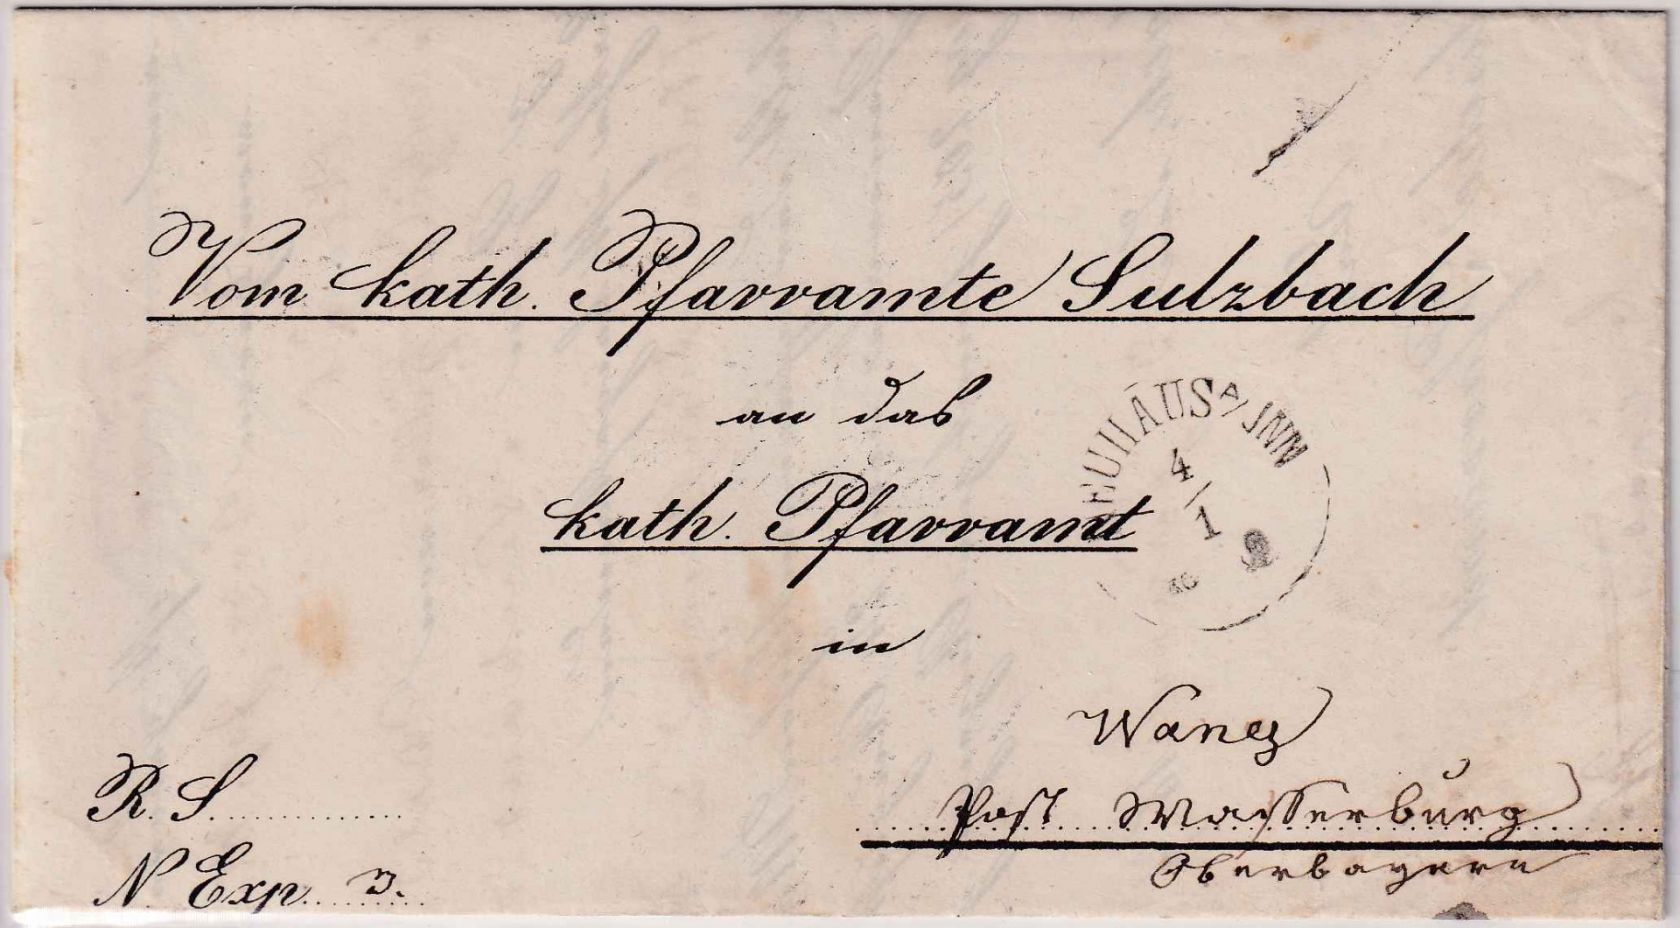 Vom kath. Pfarramte Sulzbach
an das
kath. Pfarramt
in
Post Wasserburg
Oberbayern
R. S.
N. Exp. 3.
NEUHAUS A/INN
4/1